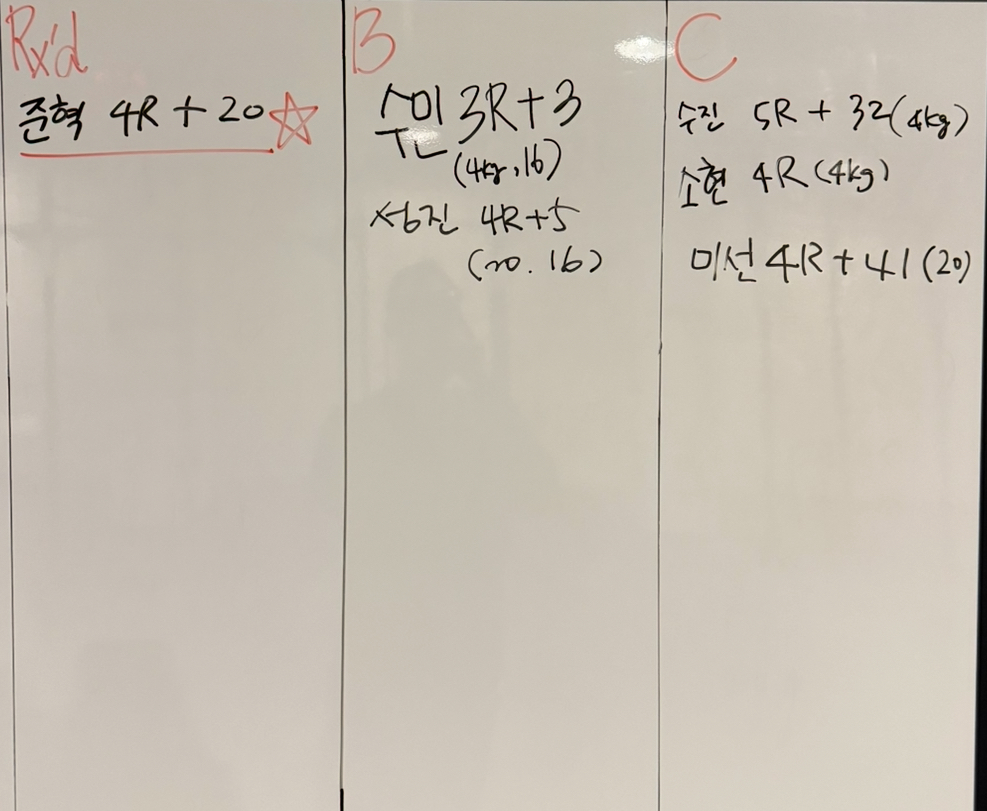 Rx'd
준혁 4R + 20
B
수민 3R + 3
(4kg, 16)
성진 4R + 5
(20. 16)
C
수진 5R + 32 (4kg)
소현 4R (4kg)
미선 4R + 41 (20)